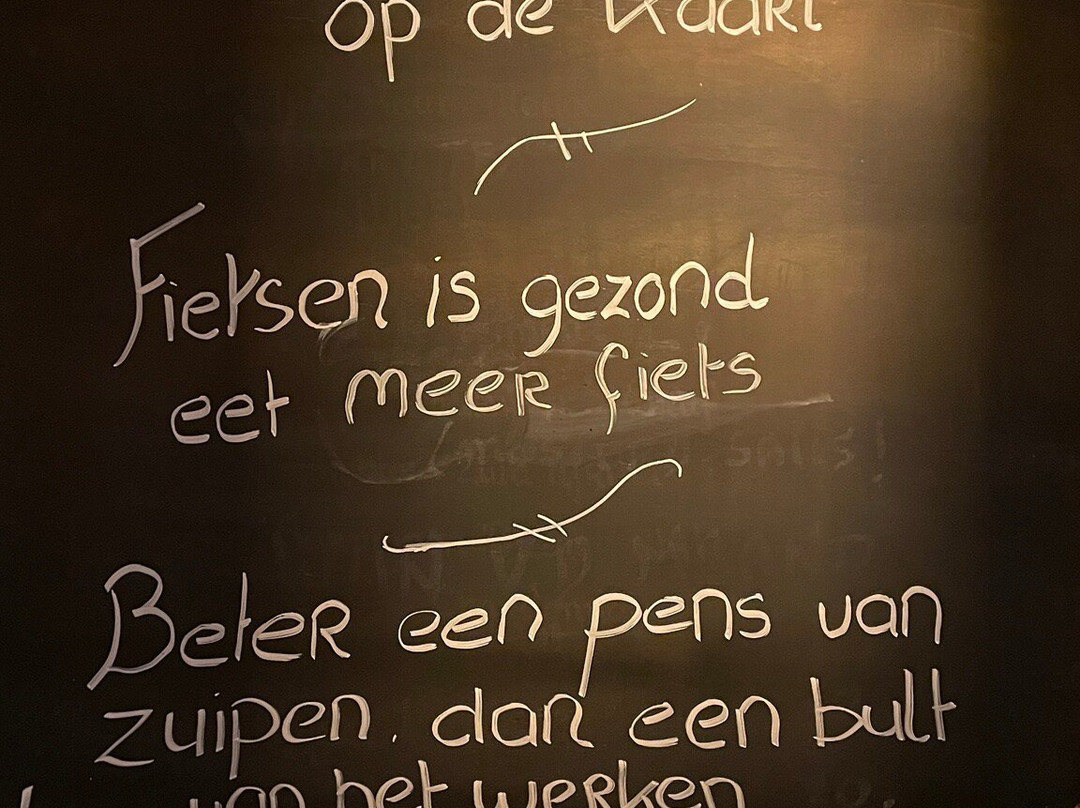 op de kaart
Fietsen is gezond
eet meer fiets
Beter een pens van
zuipen. dan een bult
van het werken